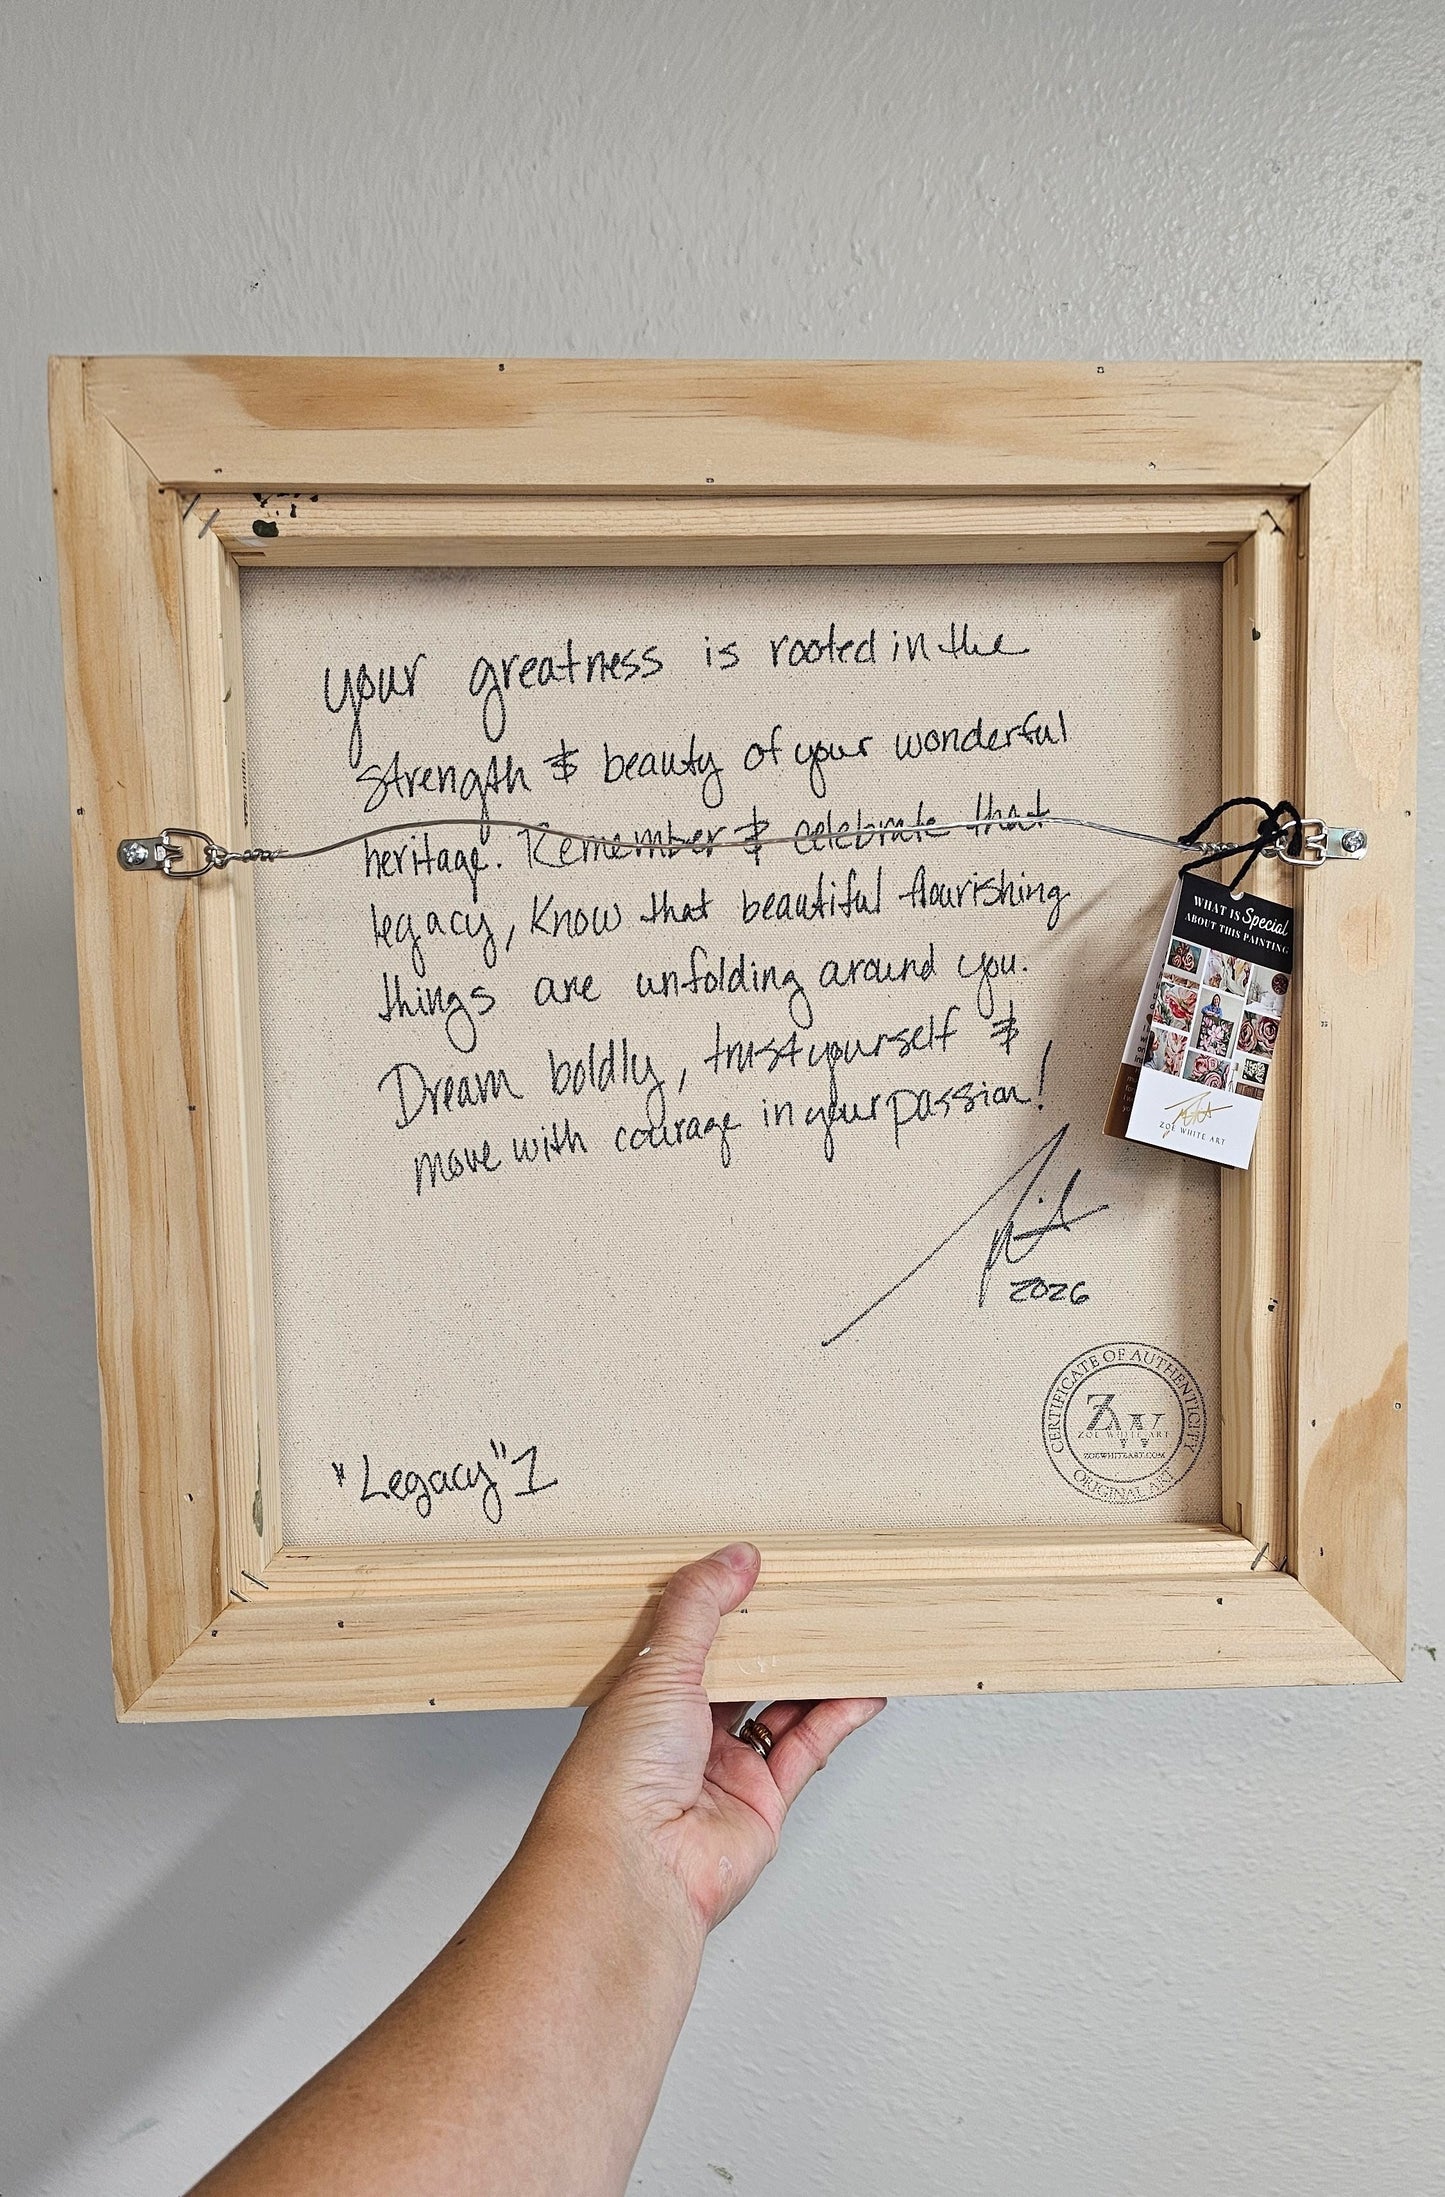 your greatness is rooted in the
strength & beauty of your wonderful
heritage. Remember & celebrate that
legacy, know that beautiful flourishing
things are unfolding around you.
Dream boldly, trust yourself &
move with courage in your passion!
2026
"Legacy" 1
WHAT IS Special
ABOUT THIS PAINTING
ZOË WHITE ART
CERTIFICATE OF AUTHENTICITY
ZW
ZOË WHITE ART
ZOEWHITEART.COM
ORIGINAL ART